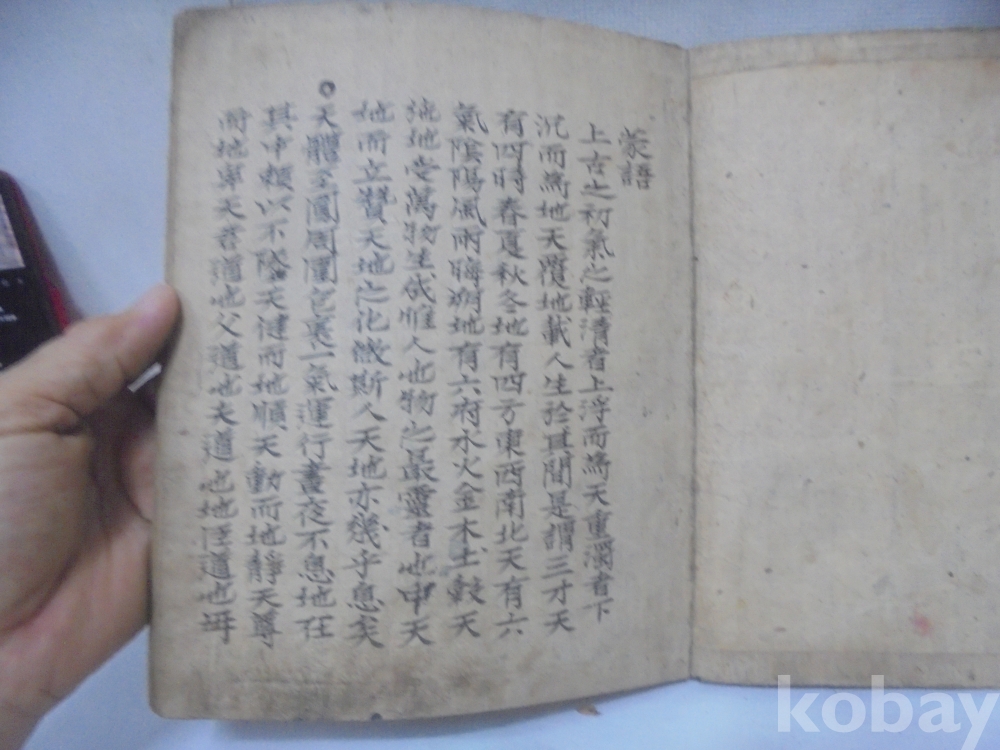 蒙語
上古之初氣之輕淸者上浮而爲天重濁者下
沉而爲地天覆地載人生於其間是謂三才天
有四時春夏秋冬地有四方東西南北天有六
氣陰陽風雨晦朔地有六府水火金木土穀天
施地受萬物生成惟人也物之最靈者也中天
地而立贊天地之化微斯人天地亦幾乎息矣
天體至圓周圍包裹一氣運行晝夜不息地在
其中賴以不墜天健而地順天動而地靜天尊
而地卑天君道也父道也夫道也地臣道也母
kobay